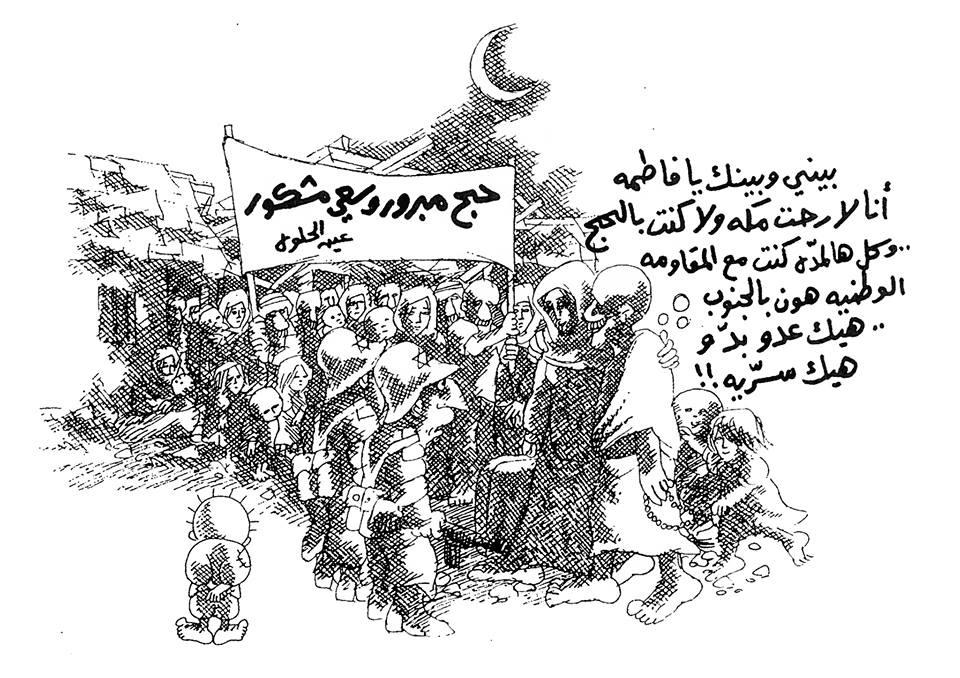 حج مبرور وسعي مشكور
عين الحلوه
بيني وبينك يا فاطمه
أنا لا رحت مكه ولا كنت بالحج
..وكل هالمدّه كنت مع المقاومه
الوطنيه هون بالجنوب
.. هيك عدو بدّو
هيك سرّيه !!